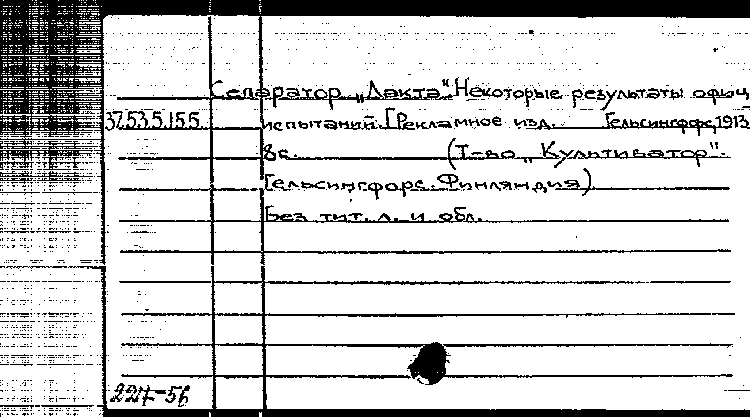 Сепаратор „Лакта“ Некоторые результаты офиц.
37.53.5.155. испытаний. [Рекламное изд. Гельсингфорс, 1913
8с. (Т-во „Культиватор“.
Гельсингфорс. Финляндия)
Без тит. л. и обл.
227-56